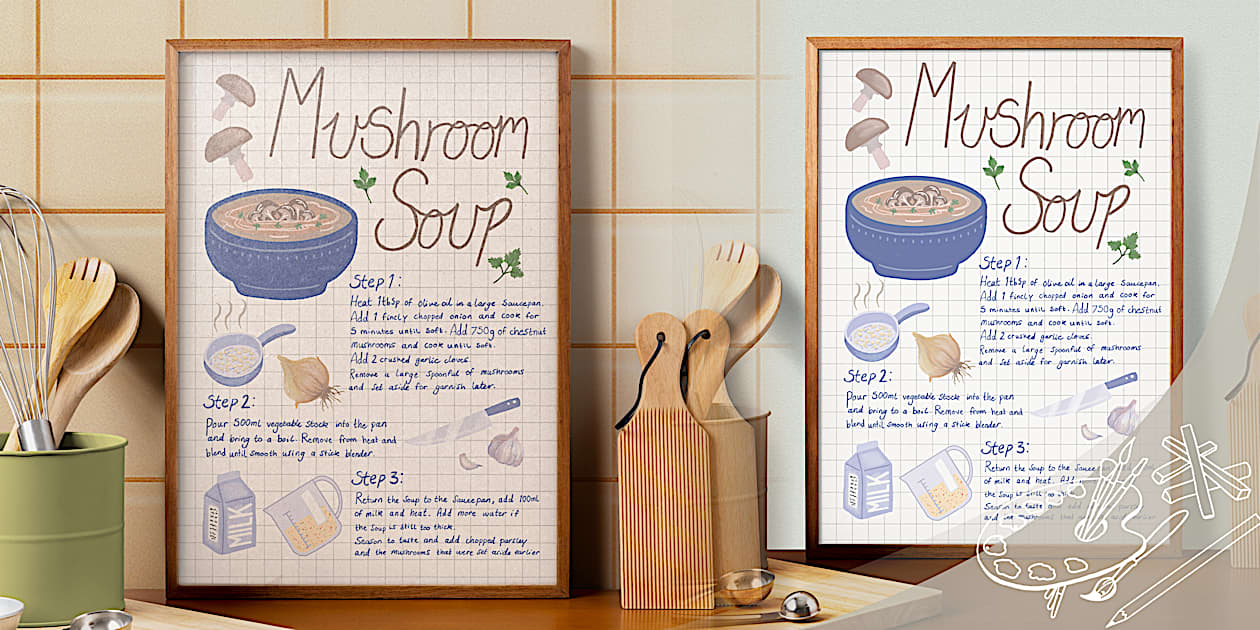 Mushroom
Soup
Step 1:
Heat 1tbsp of olive oil in a large saucepan.
Add 1 finely chopped onion and cook for
5 minutes until soft. Add 750g of chestnut
mushrooms and cook until soft.
Add 2 crushed garlic cloves.
Remove a large spoonful of mushrooms
and set aside for garnish later.
Step 2:
Pour 500ml vegetable stock into the pan
and bring to a boil. Remove from heat and
blend until smooth using a stick blender.
MILK
Step 3:
Return the soup to the saucepan, add 100ml
of milk and heat. Add more water if
the soup is still too thick.
Season to taste and add chopped parsley
and the mushrooms that were set aside earlier
Mushroom
Soup
Step 1:
Heat 1tbsp of olive oil in a large saucepan.
Add 1 finely chopped onion and cook for
5 minutes until soft. Add 750g of chestnut
mushrooms and cook until soft.
Add 2 crushed garlic cloves.
Remove a large spoonful of mushrooms
and set aside for garnish later.
Step 2:
Pour 500ml vegetable stock into the pan
and bring to a boil. Remove from heat and
blend until smooth using a stick blender.
MILK
Step 3:
Return the soup to the sauce
of milk and heat. Add
the soup is still too thick
Season to taste and add parsley
and the mushrooms that were set aside earlier